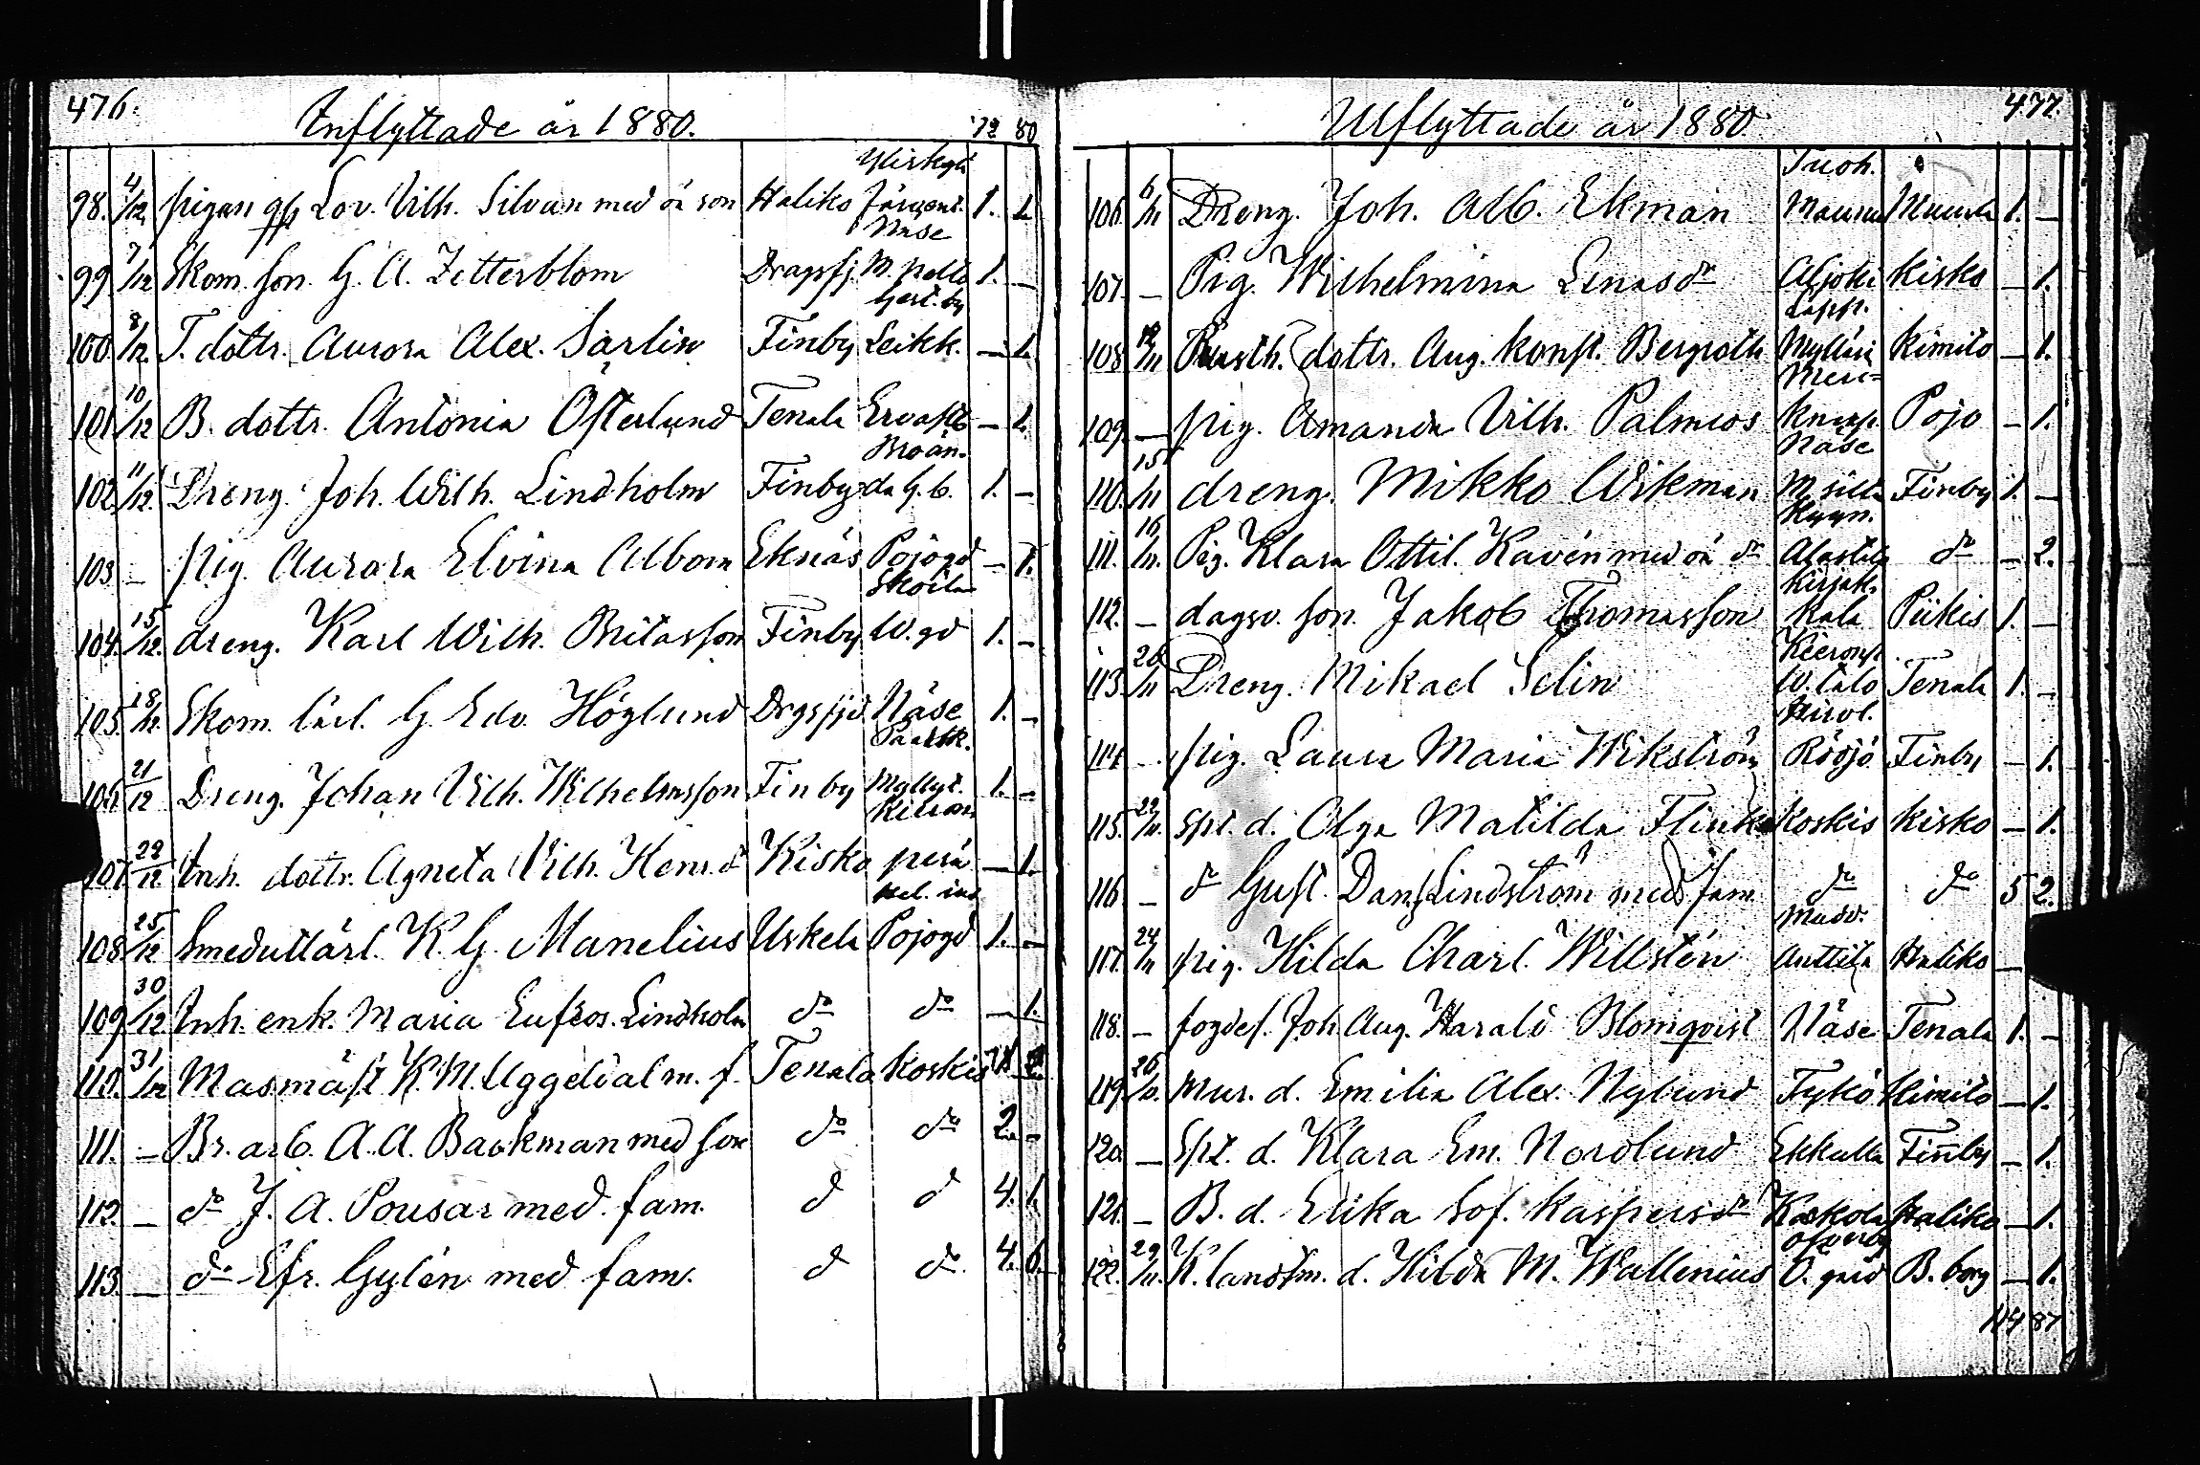 476.
Inflyttade år 1880.
72 80
98. 4/12 pigan Lov. Vilh. Silvan med oä son Haliko 1. 1.
Näse
99 7/12 Skom. son. G. A. Zetterblom Dragsfj. 1. —
100. 8/12 T. dottr. Aurora Alex. Sarlin Finby Leikk. — 1.
101. 10/12 B. dottr. Antonia Österlund Tenala — 1.
102. 11/12 Dreng. Joh. Wilh. Lindholm Finby 1. —
103. — pig. Aurora Elvina Albom Eknäs Pojogd — 1.
104. 15/12 dreng. Karl Wilh. Britasson Finby W. gd 1. —
105. 18/12 Skom. lärl. G. Edv. Höglund Drgsfjd Näse 1. —
106. 21/12 Dreng. Johan Vilh. Wilhelmsson Finby Myllyt. 1. —
107. 22/12 Inh. dottr. Agneta Vilh. Henr. dr Kisko perä — 1.
108. 25/12 Smeduttärl. K. G. Manelius Uskela Pojogd 1. —
109. 30/12 Inh. enk. Maria Eufros. Lindholm do do — 1.
110. 31/12 Masmäst K. M. Uggeldal m. f. Tenala Koskis
111. — Br. arb. A. A. Backman med son do do 2. —
112. — do J. A. Pousar med. fam. d d 4. 1.
113. — do Efr. Gylén med fam. d do 4. 6.
Utflyttade år 1880.
477.
Tuoh.
106. 6/11 Dreng. Joh. Alb. Ekman 1. —
107. — Pig. Wilhelmina Lenasdr Aljoki Kisko — 1.
Lapp.
108. Rusth. dottr. Aug. Konst. Bergroth Kimito — 1.
Meri=
109. — pig. Amanda Vilh. Palmros Pojo — 1.
Näse
110. 15/11 dreng. Mikko Wikman M. silta Finby 1. —
111. 16/11 Pig. Klara Ottil. Kavén med oä dr do — 2.
Kirjak.
112. — dagsv. son. Jakob Thomasson kala Piikis 1. —
113. 20/11 Dreng. Mikael Selin W. talo Tenala 1. —
114. — pig. Laura Maria Wikström Rösjö Finby — 1.
115. 22/11 spt. d. Olga Matilda Flinck Koskis Kisko — 1.
116. — do Gust. Dan. Lindström med fam do do 5 2.
117. 24/11 pig. Hilda Charl. Willstén Anttila Haliko —
118. — fogdes. Joh. Aug. Harald Blomqvist Näse Tenala 1. —
119. 26/11 Mur. d. Emilia Alex. Nylund Tykö Kimito — 1.
120. — Spt. d. Klara Em. Nordlund Ekkulla Finby — 1.
121. — B. d. Erika Sof. Kaspersdr Koskola Haliko — 1.
122. 29/11 K. landtm. d. Hilda M. Wallenius Ö. gård B. borg — 1.
114 87